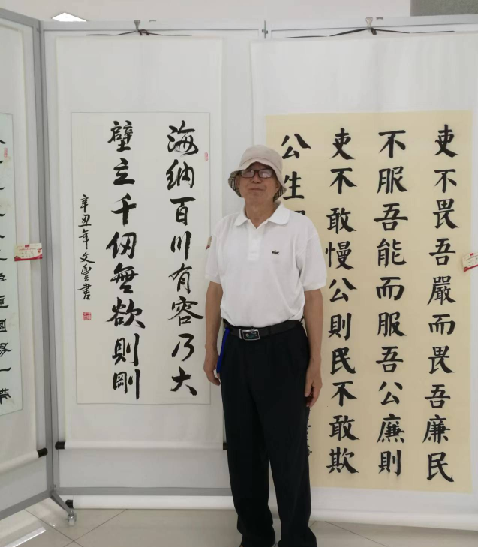 吏不畏吾嚴而畏吾廉民
不服吾能而服吾公廉則
吏不敢慢公則民不敢欺
公生
海納百川有容乃大
壁立千仞無欲則剛
辛丑年文書